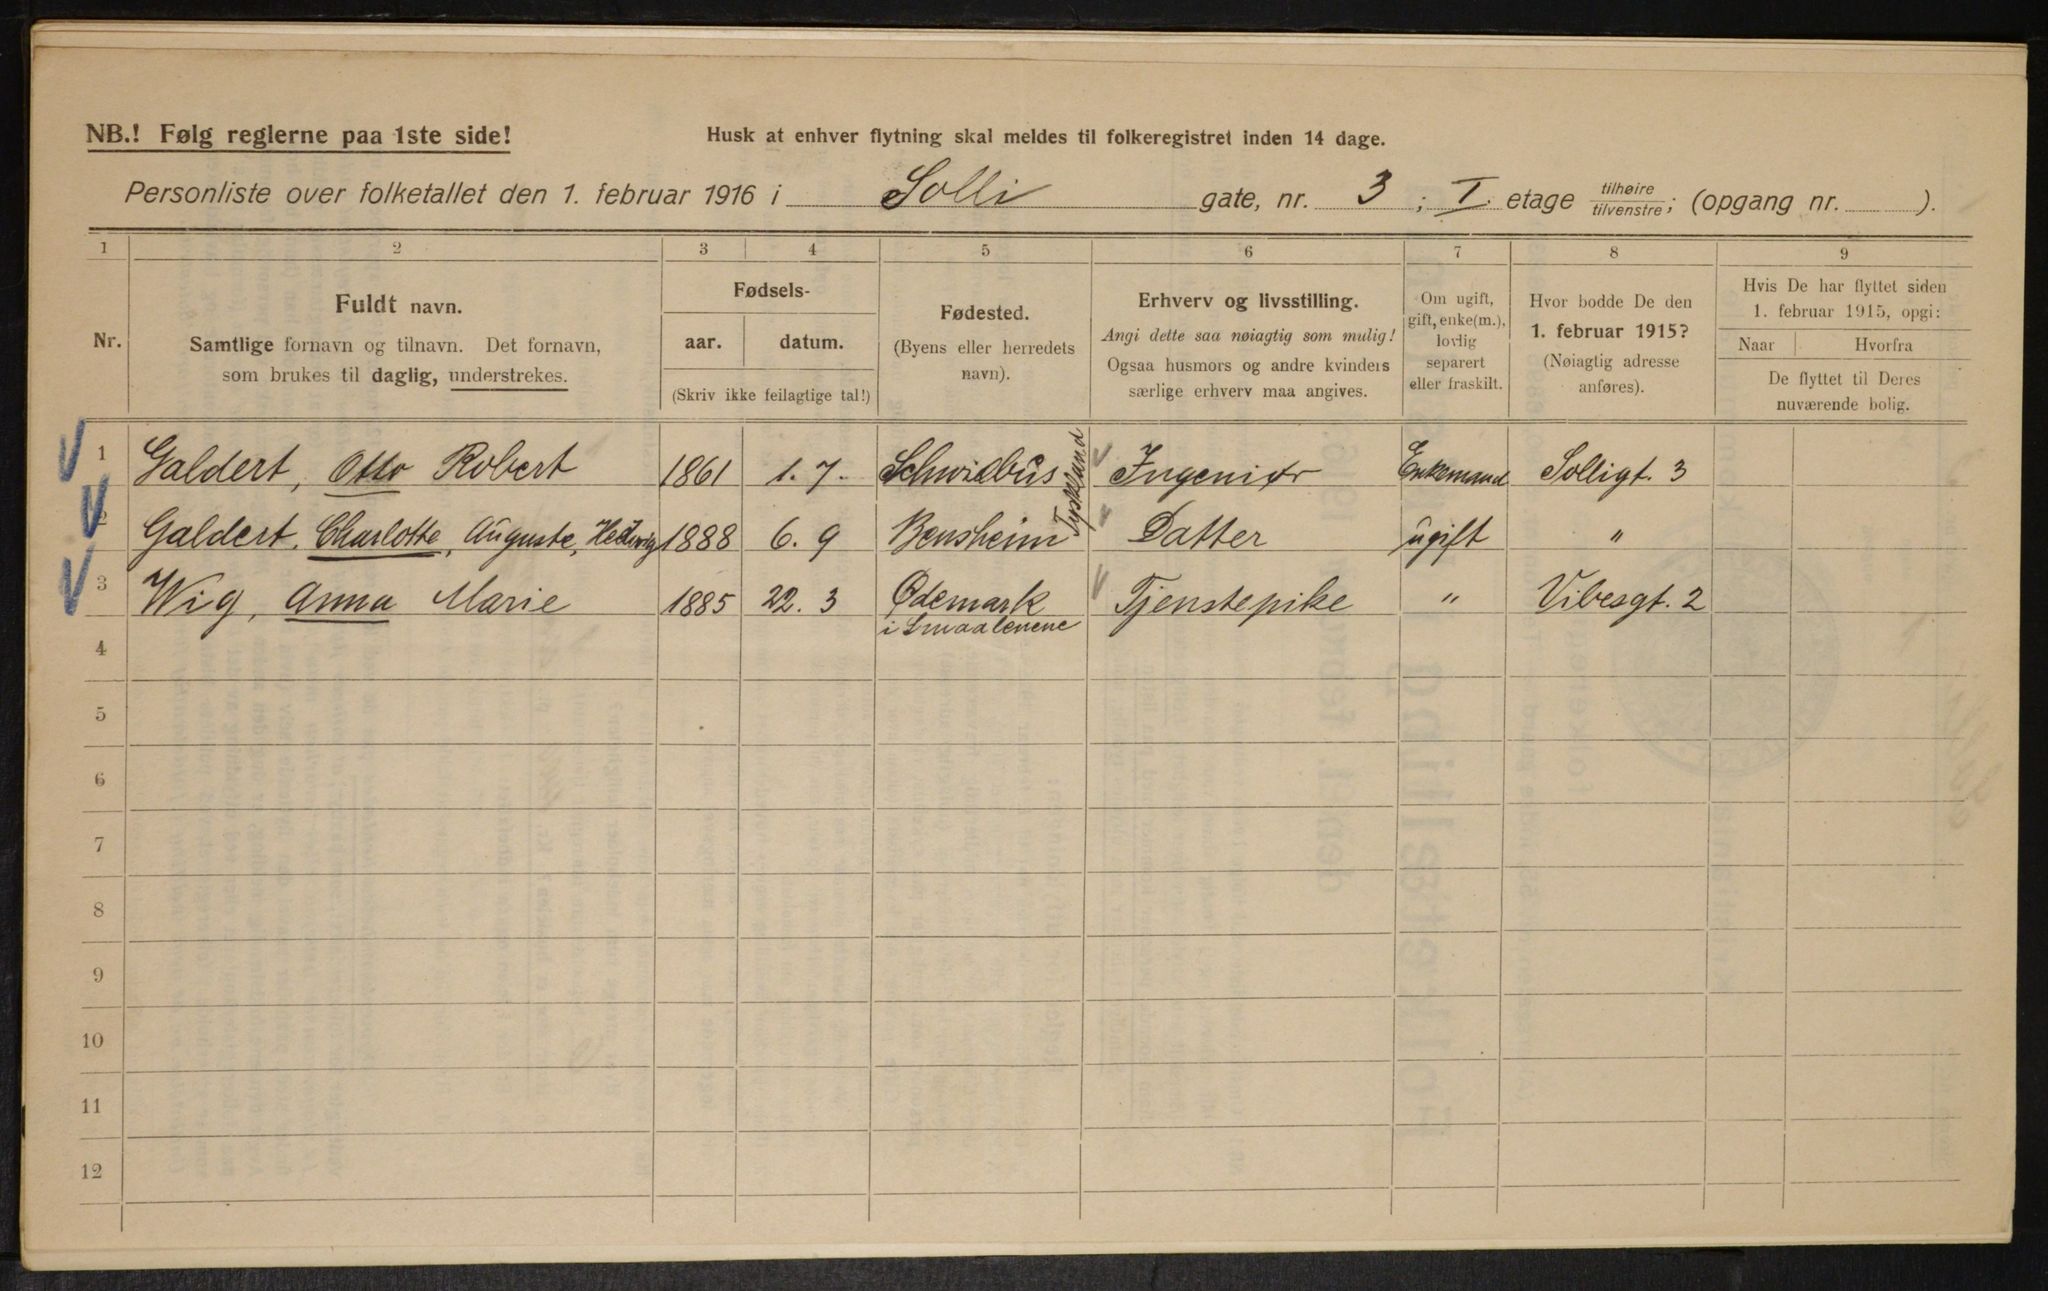 NB.! Følg reglerne paa 1ste side!
Husk at enhver flytning skal meldes til folkeregistret inden 14 dage.
Personliste over folketallet den 1. februar 1916 i Solli gate, nr. 3 ; I. etage tilhøire tilvenstre; (opgang nr. ).
1 2 3 4 5 6 7 8 9
Nr.
Fuldt navn.
Samtlige fornavn og tilnavn. Det fornavn,
som brukes til daglig, understrekes.
Fødsels-
aar. datum.
(Skriv ikke feilagtige tal!)
Fødested.
(Byens eller herredets
navn).
Erhverv og livsstilling.
Angi dette saa nøiagtig som mulig!
Ogsaa husmors og andre kvinders
særlige erhverv maa angives.
Om ugift,
gift, enke(m.),
lovlig
separert
eller fraskilt.
Hvor bodde De den
1. februar 1915?
(Nøiagtig adresse
anføres).
Hvis De har flyttet siden
1. februar 1915, opgi:
Naar Hvorfra
De flyttet til Deres
nuværende bolig.
1 Galdert, Otto Robert 1861 1.7. Schwiebus Tyskland Ingeniør Enkemand Solligt. 3
2 Galdert, Charlotte, Auguste, Hedwig 1888 6.9 Bensheim Datter ugift "
3 Wig, Anna Marie 1885 22.3 Ødemark Tjenstepike " Vibesgt. 2
i Smaalenene
4
5
6
7
8
9
10
11
12